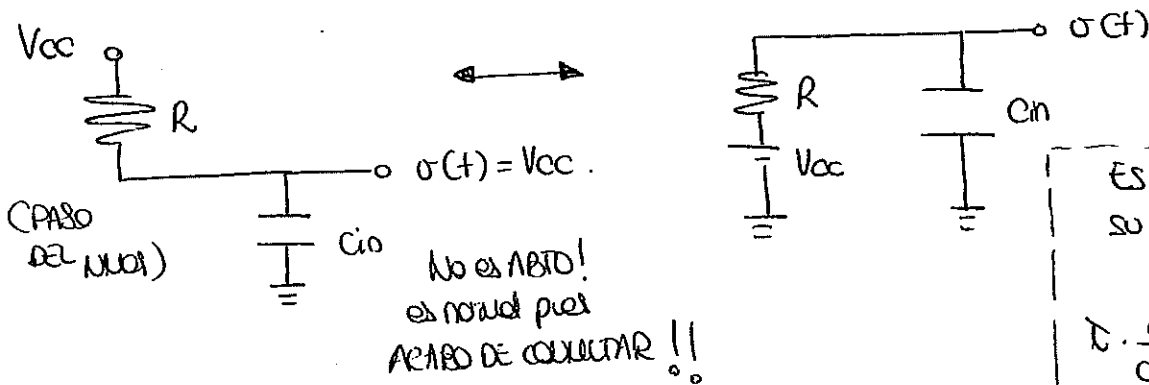 Vcc
R
(PASO
DEL NMOS)
σ(t) = Vcc.
Cin
No es ABTO!
es normal pues
ACABO DE CONMUTAR!!
σ(t)
R
Cin
Vcc
ES
SU
τ.